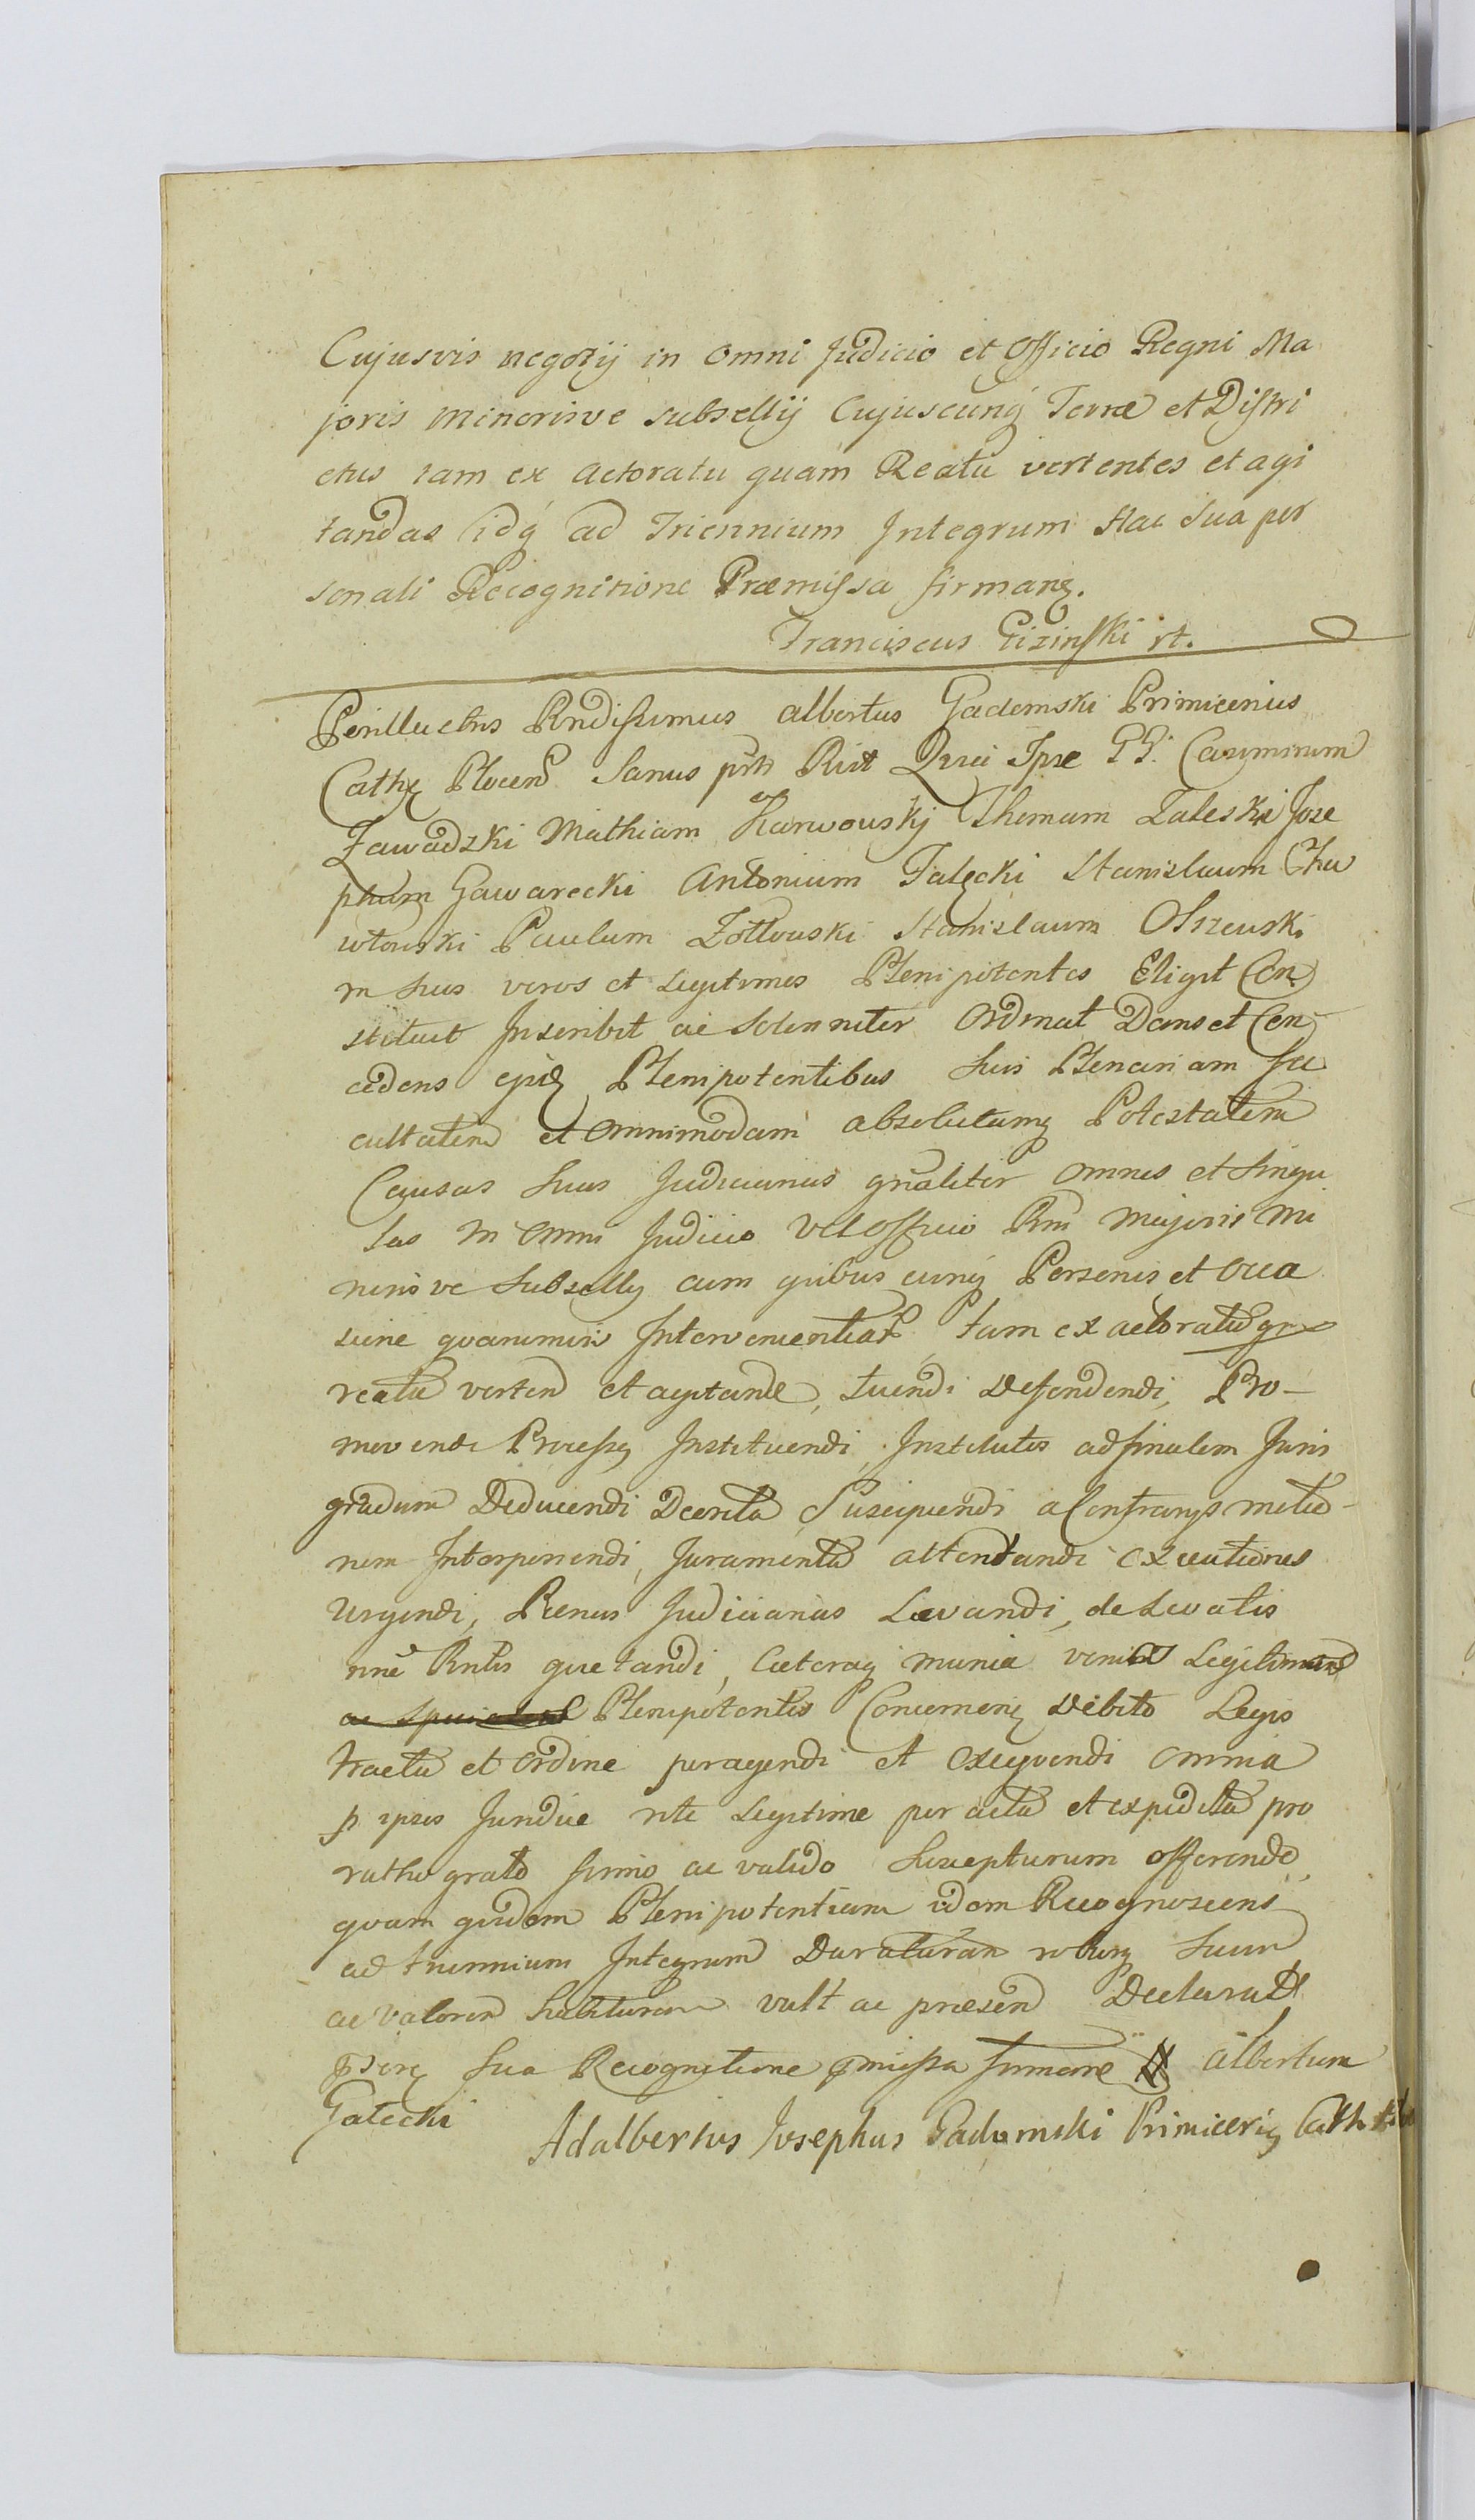 Cujusvis negozij in omni Judicio et Officio Regni Ma
joris Minorisve subsellij Cujuscunq́ Terræ et Distri
ctus tam ex actoratu quam Reatu vertentes et agi
tandas idq́ ad Triennium Integrum Hac Sua per
sonali Recognitione Præmissa firmanꝫ.
Franciscus Gizinski rt.
Perillustris Rndissimus Albertus Gadomski Primicerius
Cathꝫ Plocen Sanus Rit Quia Ipse GG. Casimirum
Zawadzki Mathiam Karwouskj Thomam Zaleski Jose
phum Gawarecki Antonium Falęcki Stanislaum Cha
wlouski Paulum Zołtouski Stanislaum Olszeuski
in suos veros et Legitimos Plenipotentes Eligit Con
stituit Inscribit ac Solenniter Ordinat Dans et Con
cedens Plenipotentibus suis Plenariam fa
cultatem et omnimodam absolutamꝫ Potestatem
Causas suas Judiciarias gnaliter omnes et singu
las in omni Judicio vel Officio Rni majoris mi
noris ve Subsellij cum quibus cunq́ Personis et occa
sione quarumvis Intervenientiar tam ex actoratu
reatu verten et agitand, tuendi Defendendi, Pro-
movendi Processꝫ Instituendi, Institutos ad finalem Juris
gradum Deducendi Decreta Suscipiendi a Contrarys motio-
nem Interponendi, Juramenta attentandi executiones
Urgendi, Pœnas Judiciarias Levandi, de Levatis
nne Rntis quietandi, Cæteraq́ munia Legitimum
ac Plenipotentis Concernenꝫ Debito Legis
tractu et ordine peragendi et Exequendi omnia
p ipsos Juridice rite Legitime per acta et expedita pro
ratho grato firmo ac valido Suscepturum offerendo
quam quidem Plenipotentiam idem Recognoscens
ad triennium Integrum Duraturam roburꝫ suum
ac valorem habituram vult ac præsen Declarat
psonꝫ sua Recognitione pmissa firmare Albertum
Gałecki
Adalbertus Josephus Gadomski Primiceriꝫ Cath